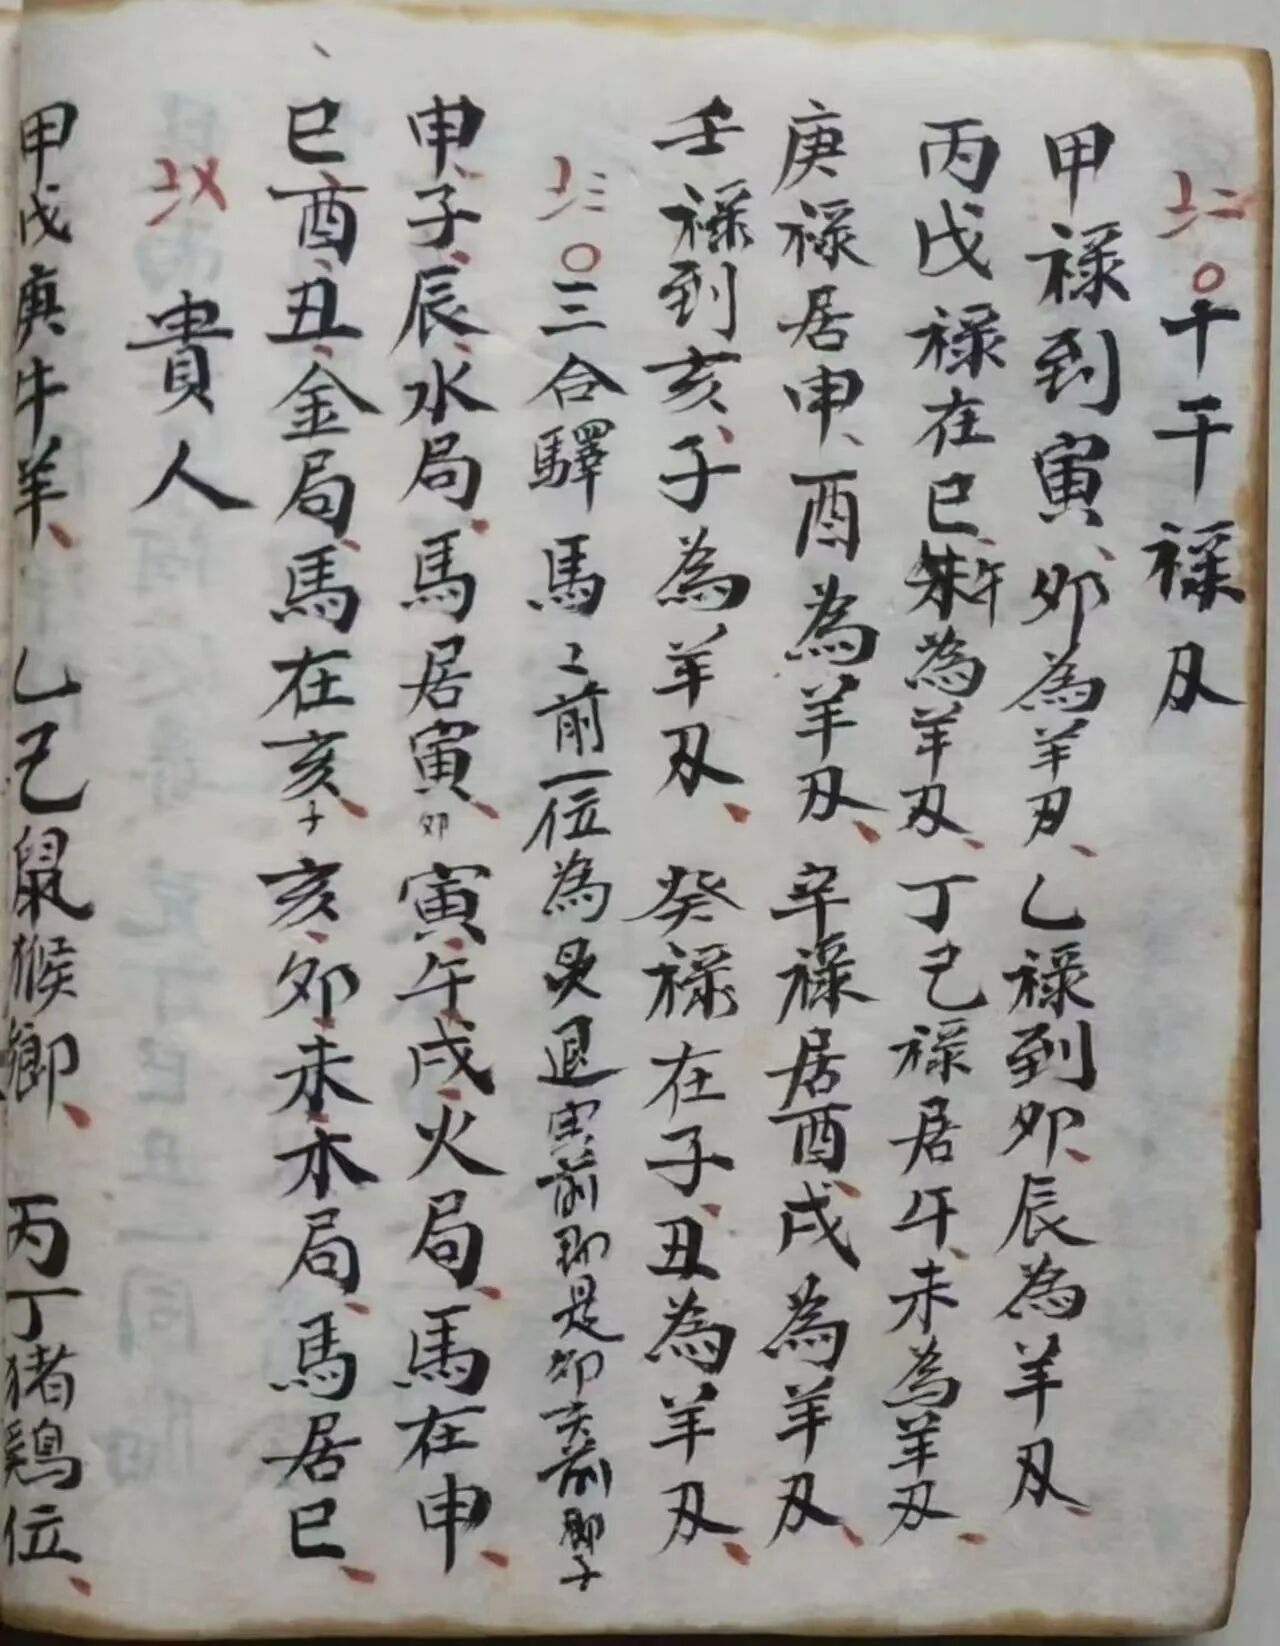 十干禄刃
甲禄到寅、卯為羊刃、乙禄到卯、辰為羊刃、
丙戊禄在巳、午為羊刃、丁己禄居午、未為羊刃、
庚禄居申、酉為羊刃、辛禄居酉、戌為羊刃、
壬禄到亥、子為羊刃、癸禄在子、丑為羊刃、
三合驛馬〻前一位為 退寅前即是卯亥前即子
申、子、辰、水局、馬居寅、卯寅、午、戌、火局、馬在申、
巳酉、丑、金局、馬在亥、子亥、卯、未、木局、馬居巳、
貴人
甲戊庚牛羊、乙己鼠猴鄉、丙丁猪鷄位、